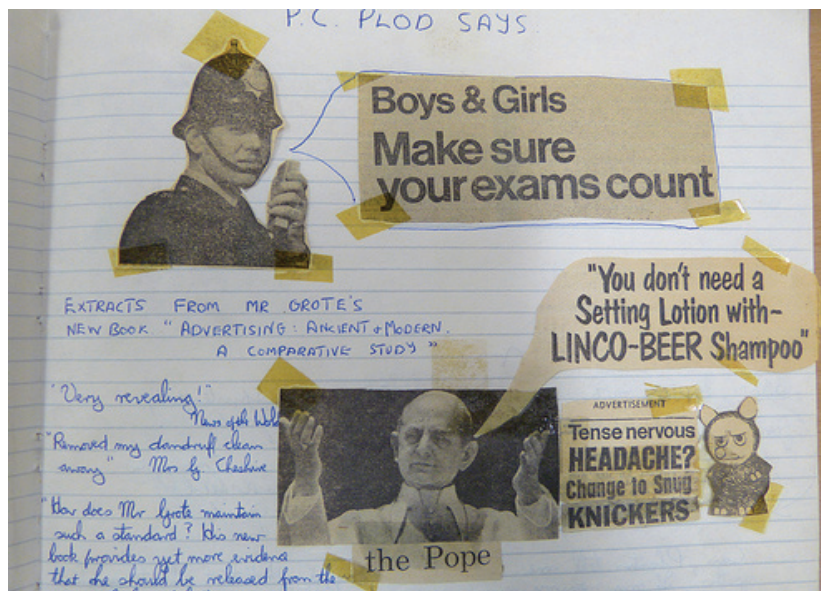 P.C. PLOD SAYS
Boys & Girls
Make sure
your exams count
EXTRACTS FROM MR GROTE'S
NEW BOOK "ADVERTISING: ANCIENT & MODERN.
A COMPARATIVE STUDY"
"You don't need a
Setting Lotion with-
LINCO-BEER Shampoo"
"Very revealing!"
News of the World
"Removed my dandruff clean
away" Mrs G Cheshire
"How does Mr Grote maintain
such a standard? His new
book provides yet more evidence
that he should be released from the
the Pope
ADVERTISEMENT
Tense nervous
HEADACHE?
Change to Snug
KNICKERS